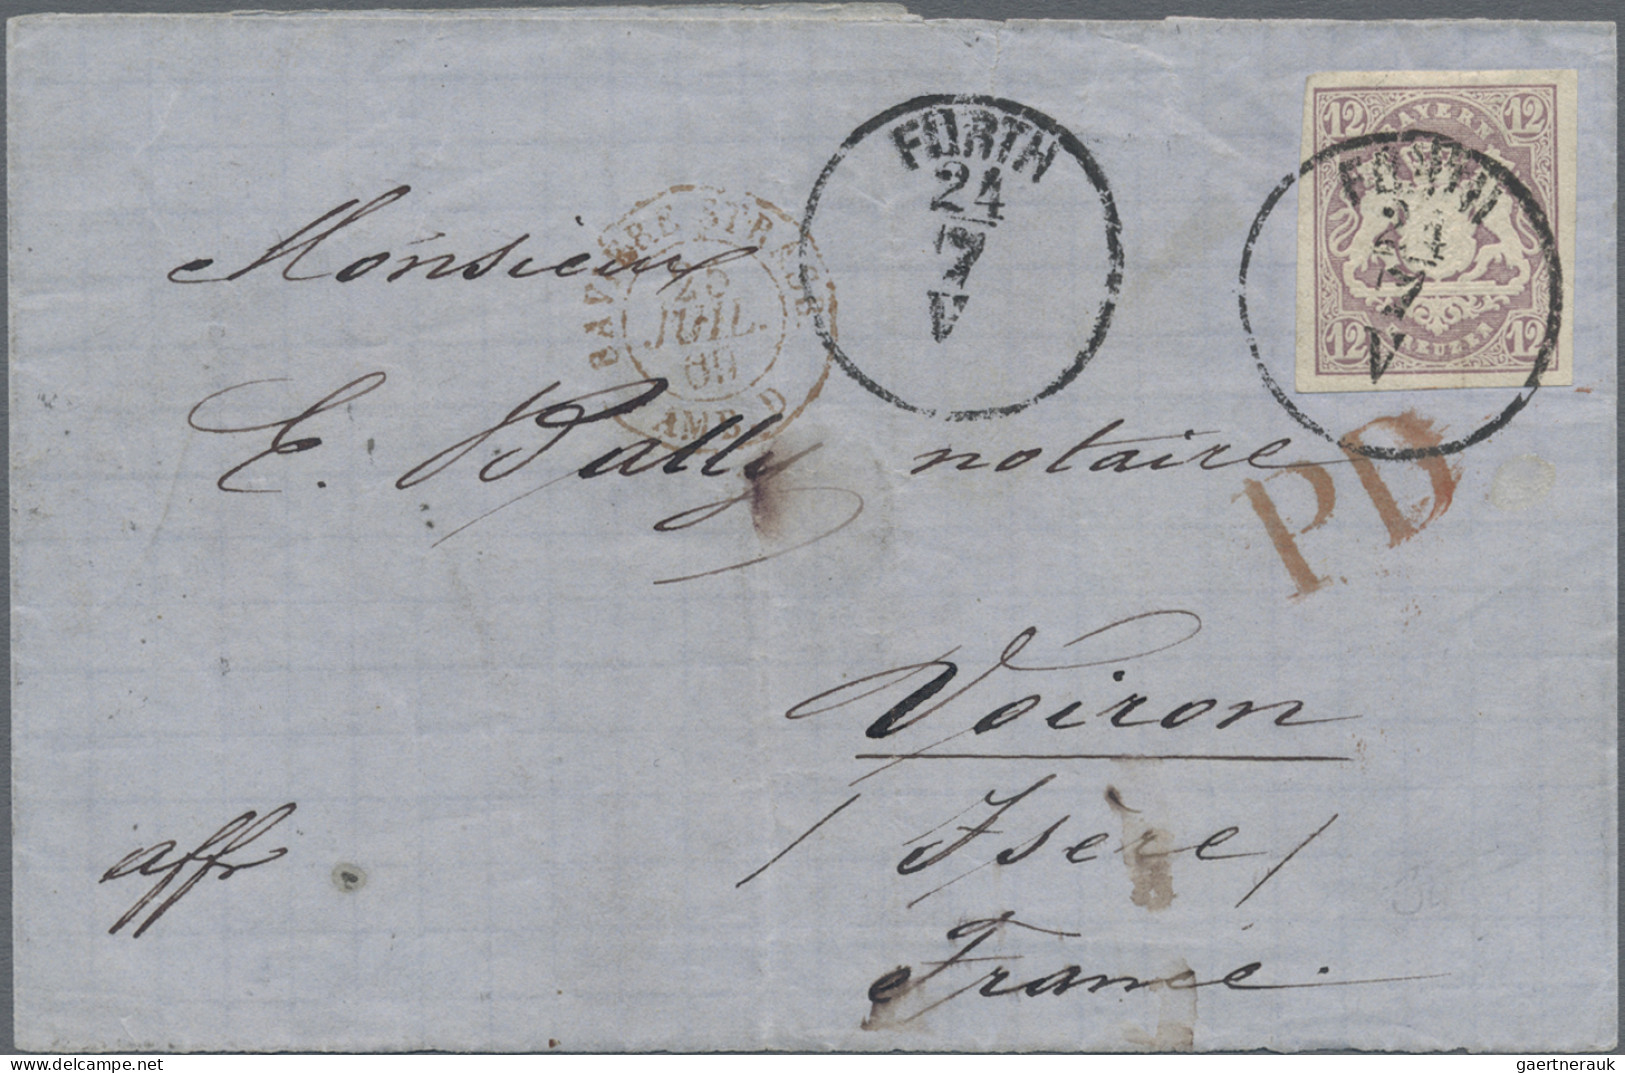 12 BAYERN 12
FÜRTH
24
7
V
FÜRTH
24
7
V
12 KREUZER 12
BAVIERE STRASB
25
JUIL.
AMB. D
Monsieur
E. Bally notaire
P.D.
Voiron
/ Isère /
France.
affr
delcampe.net
gaertnerauk